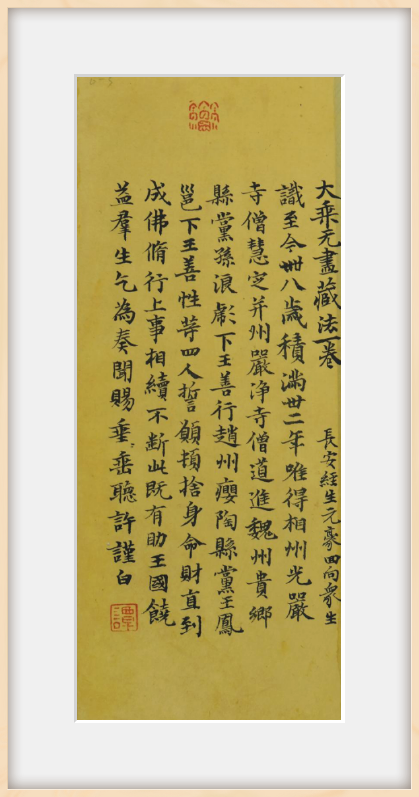 大乘无盡藏法一卷 長安経生元豪田向衆生
識至今卌八歲積滿廿二年唯得相州光嚴
寺僧慧定并州嚴浄寺僧道進魏州貴鄉
縣黨孫浪彪下王善行趙州癭陶縣黨王鳳
邕下王善性等四人誓願頓捨身命財直到
成佛脩行上事相續不断此既有助王國饒
益羣生乞為奏聞賜垂垂聽許謹白